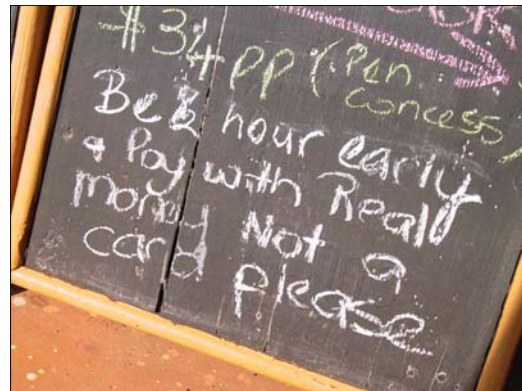 $34 pp (Pen concess)
Be ½ hour early
& Pay with Real
money Not a
card please